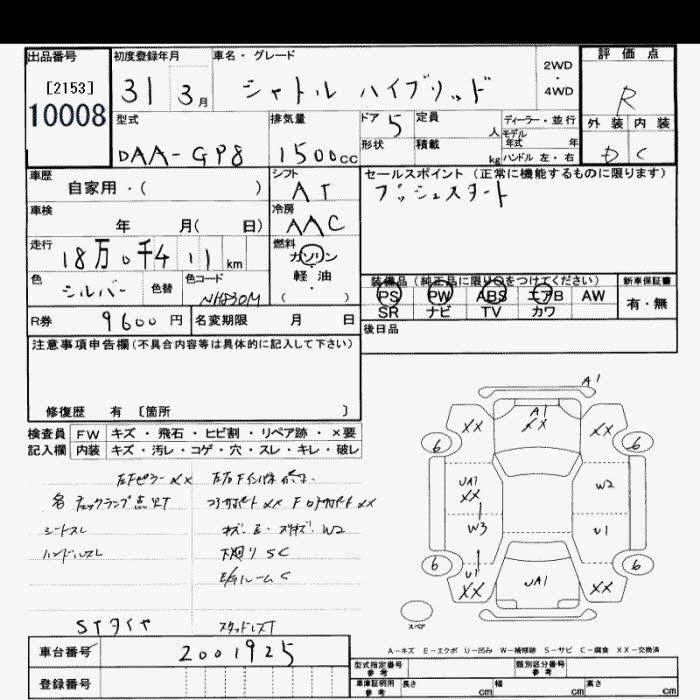 出品番号
[2153]
10008
初度登録年月
31 3月
車名・グレード
シャトル ハイブリッド
2WD
・
4WD
評価点
R
外装 内装
D C
型式
DAA-GP8
排気量
1500cc
ドア 5
形状
定員
人
積載
kg
ディーラー・並行
モデル
年式 年
ハンドル 左・右
車歴
自家用・( )
シフト
AT
セールスポイント(正常に機能するものに限ります)
プッシュスタート
車検
年 月( 日)
冷房
AAC
走行
18万0千411km
燃料
ガソリン
軽・油
・
( )
色
シルバー
色替
色コード
NH830M
装備品(純正品に限り○をつけてください)
PS PW ABS エアB AW
SR ナビ TV カワ
新車保証書
有・無
R券 9600円
名変期限 月 日
後日品
注意事項申告欄(不具合内容等は具体的に記入して下さい)
修復歴 有 〔箇所 〕
検査員
記入欄
FW キズ・飛石・ヒビ割・リペア跡・×要
内装 キズ・汚レ・コゲ・穴・スレ・キレ・破レ
左Fピラー XX
チェックランプ点灯
シートスレ
ハンドルスレ
キズ・E・
W2
下廻り SC
C
STタイヤ
スタッドレス
A1
A1
XX
XX
XX
6
6
UA1
XX
W2
W3
U1
6
6
U1
XX
UA1
XX
スペア
A-キズ E-エクボ U-凹み W-補修跡 S-サビ C-腐食 XX-交換済
車台番号 2001925
登録番号
型式指定番号
参考
類別区分番号
参考
車庫証明用
参考
長さ cm
幅 cm
高さ cm